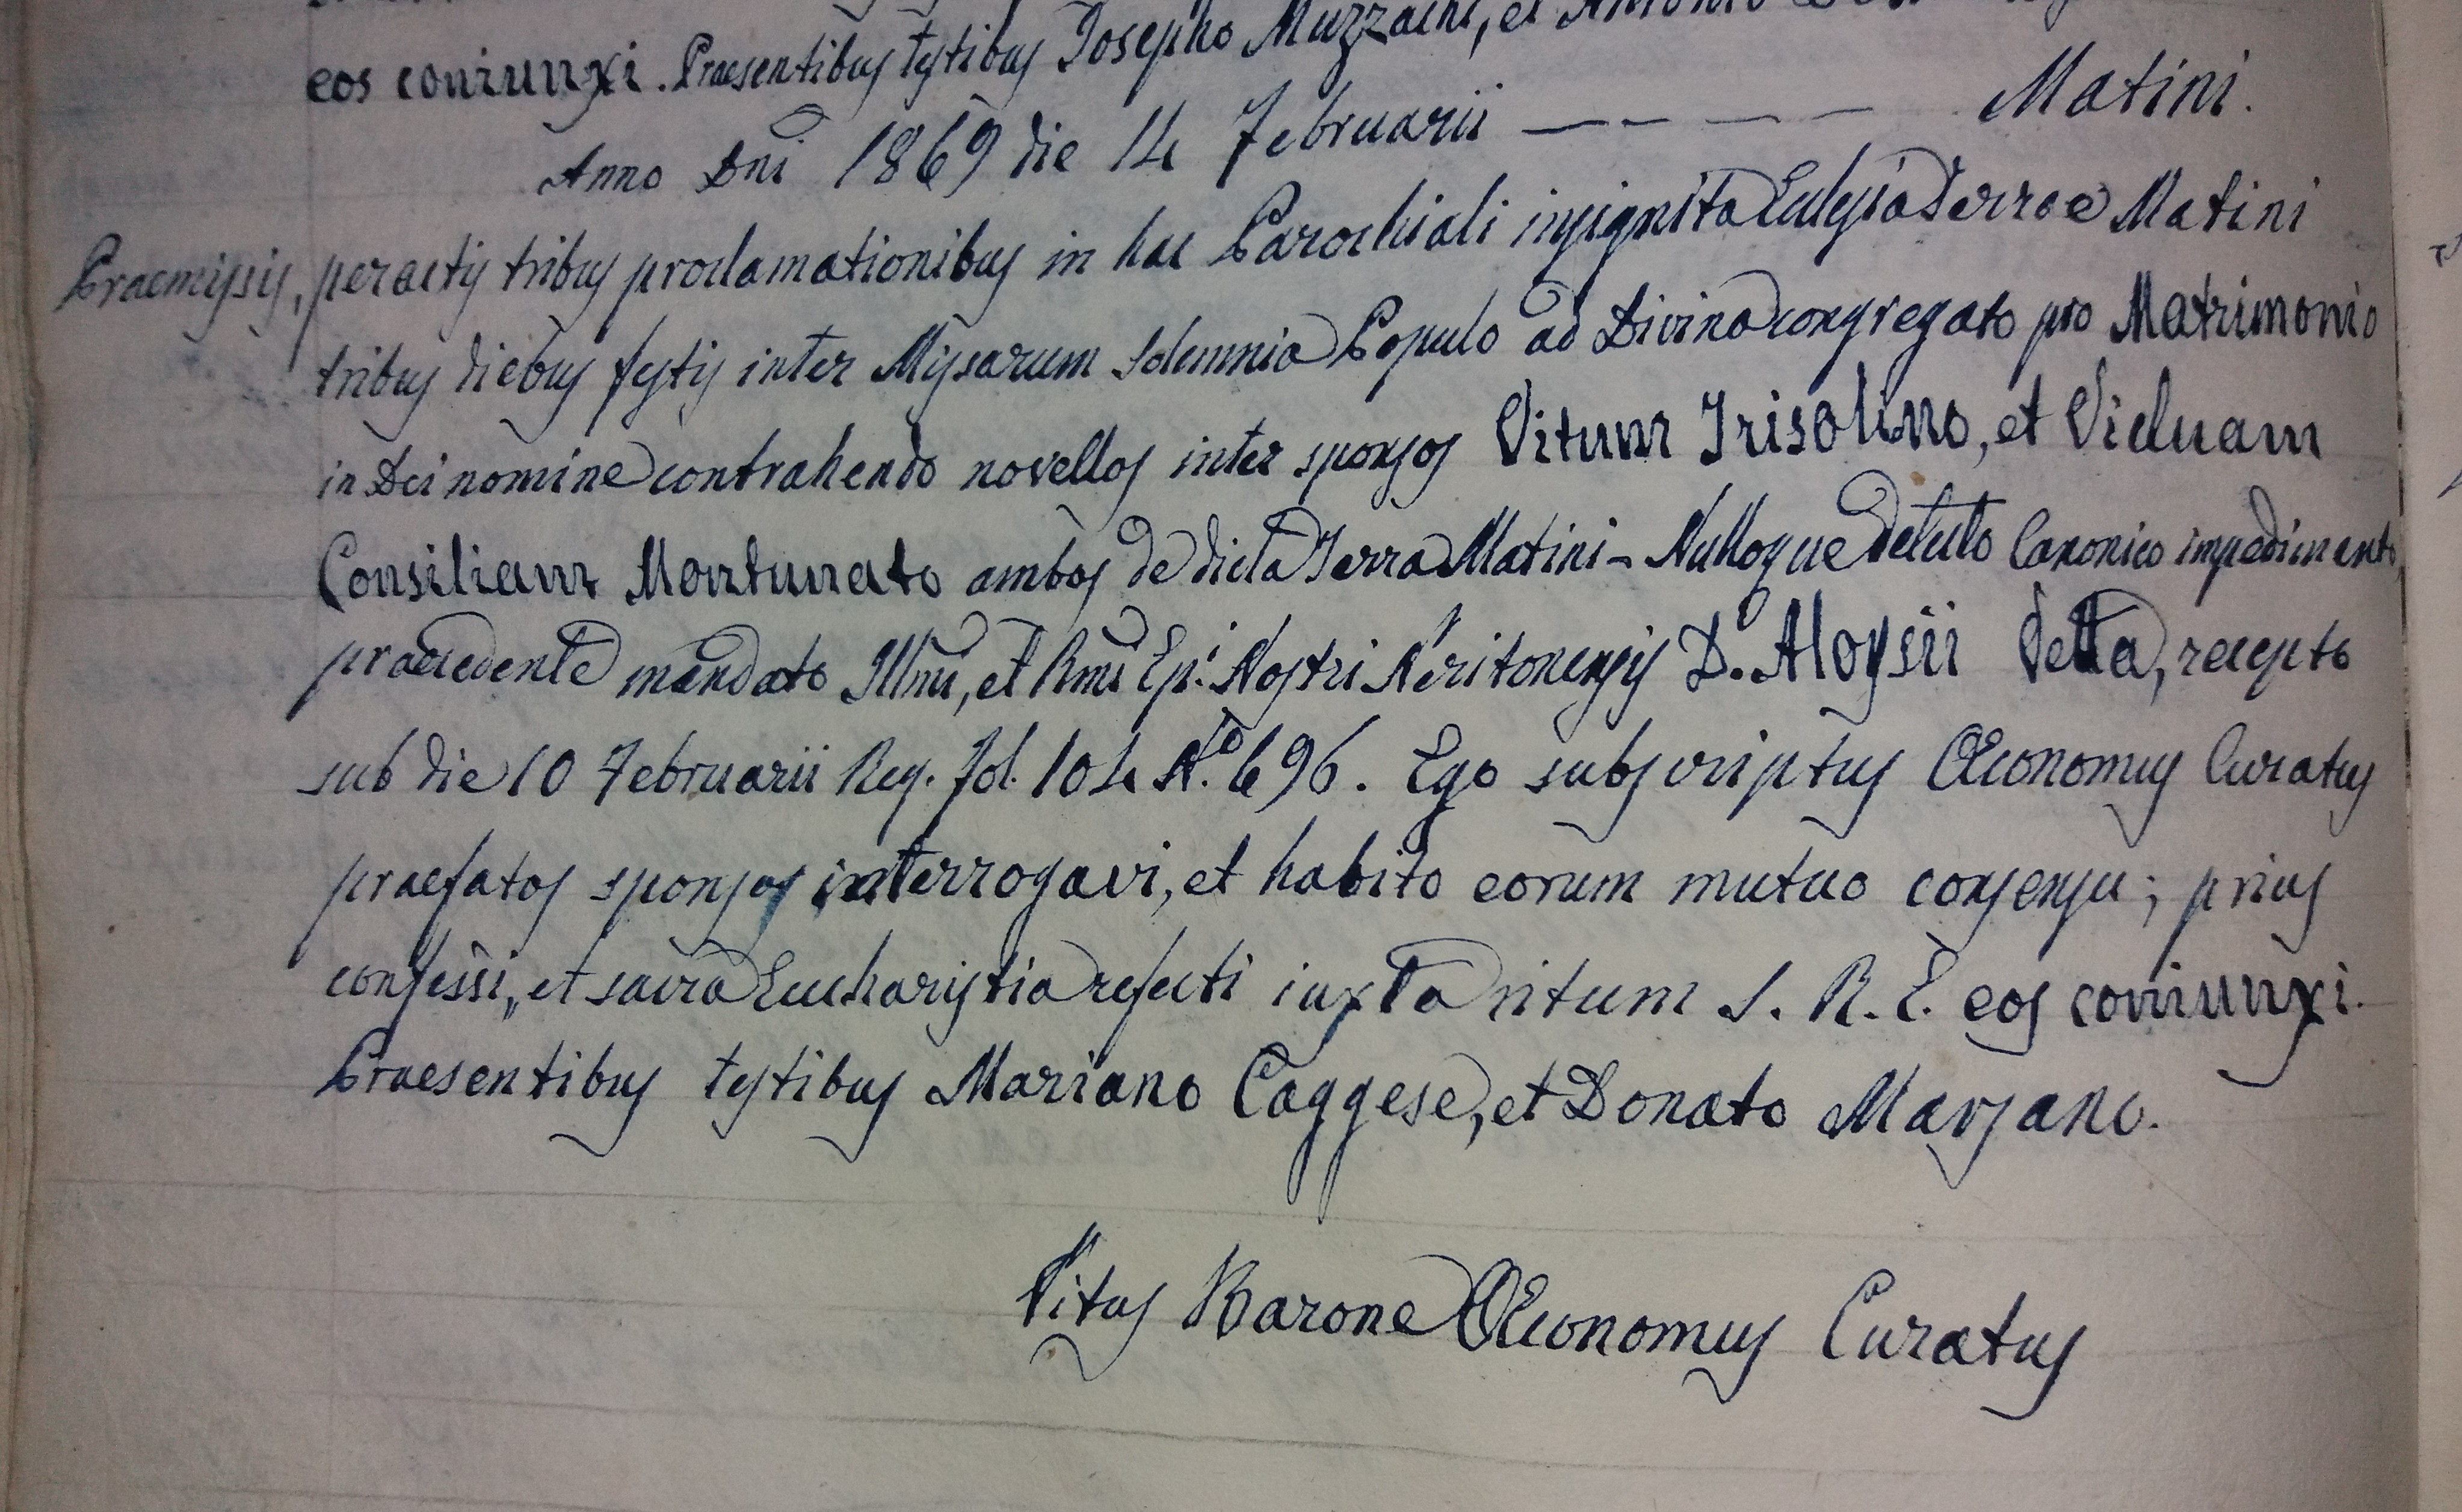 eos coniunxi. Praesentibus testibus Josepho Muzzachi, et Antonio
Anno Dni 1869 die 14 Februarii — — — — Matini.
Praemissis, peractis tribus proclamationibus in hac Parochiali insignita Eclesia Terrae Matini
tribus diebus festis inter Missarum Solemnia Populo ad Divina congregato pro Matrimonio
in Dei nomine contrahendo novellos inter sponsos Vitum Frisolino, et Viduam
Consiliam Montunato ambos de dicta Terra Matini - Nulloque detecto Canonico impedimento,
praecedente mandato Illmi, et Rmi Epi. Nostri Neritonensis D. Aloysii Vetta, recepto
sub die 10 Februarii Reg. Fol. 104 N.o 696. Ego subscriptus Œconomus Curatus
praefatos sponsos interrogavi, et habito eorum mutuo consensu; prius
confessi, et sacra Eucharistia refecti iuxta ritum S. R. E. eos coniunxi.
Praesentibus testibus Mariano Caggese, et Donato Marsano.
Vitus Barone Œconomus Curatus